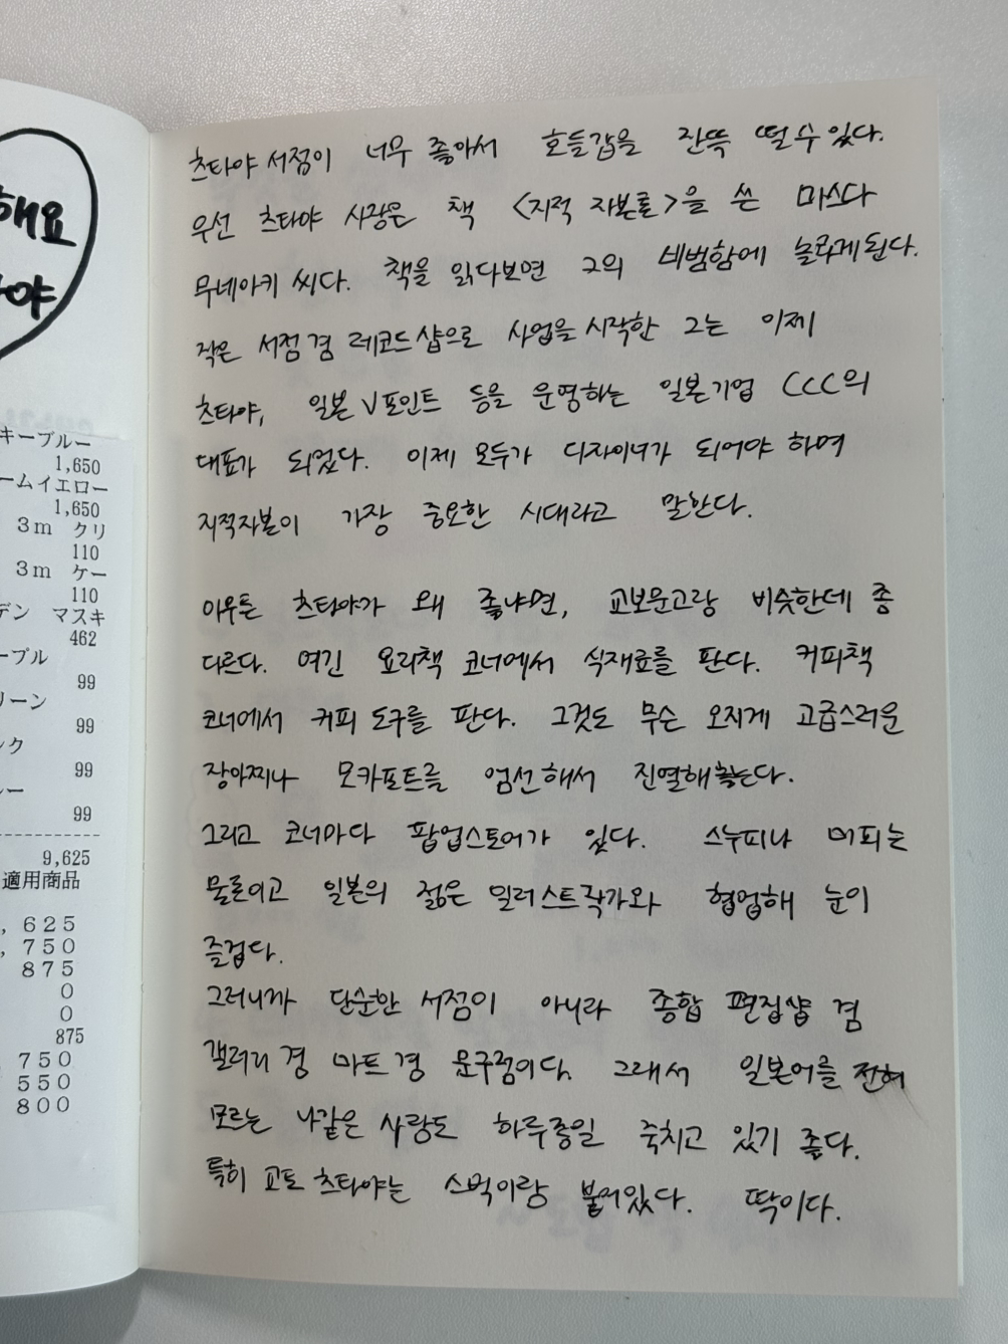 해요
야
キーブルー
1,650
ームイエロー
1,650
3m クリ
110
3m ケー
110
デン マスキ
462
ープル
99
リーン
99
ック
99
レー
99
9,625
適用商品
,625
,750
875
0
0
875
750
550
800
츠타야 서점이 너무 좋아서 호들갑을 잔뜩 떨 수 있다.
우선 츠타야 사장은 책 <지적 자본론>을 쓴 마스다
무네아키 씨다. 책을 읽다보면 그의 비범함에 놀라게된다.
작은 서점 겸 레코드샵으로 사업을 시작한 그는 이제
츠타야, 일본 V포인트 등을 운영하는 일본기업 CCC의
대표가 되었다. 이제 모두가 디자이너가 되어야 하며
지적자본이 가장 중요한 시대라고 말한다.
아무튼 츠타야가 왜 좋냐면, 교보문고랑 비슷한데 좀
다르다. 여긴 요리책 코너에서 식재료를 판다. 커피책
코너에서 커피 도구를 판다. 그것도 무슨 오지게 고급스러운
장아찌나 모카포트를 엄선해서 진열해놓는다.
그리고 코너마다 팝업스토어가 있다. 스누피나 미피는
물론이고 일본의 젊은 일러스트작가와 협업해 눈이
즐겁다.
그러니까 단순한 서점이 아니라 종합 편집샵 겸
갤러리 겸 마트 겸 문구점이다. 그래서 일본어를 전혀
모르는 나같은 사람도 하루종일 죽치고 있기 좋다.
특히 교토 츠타야는 스벅이랑 붙어있다. 딱이다.